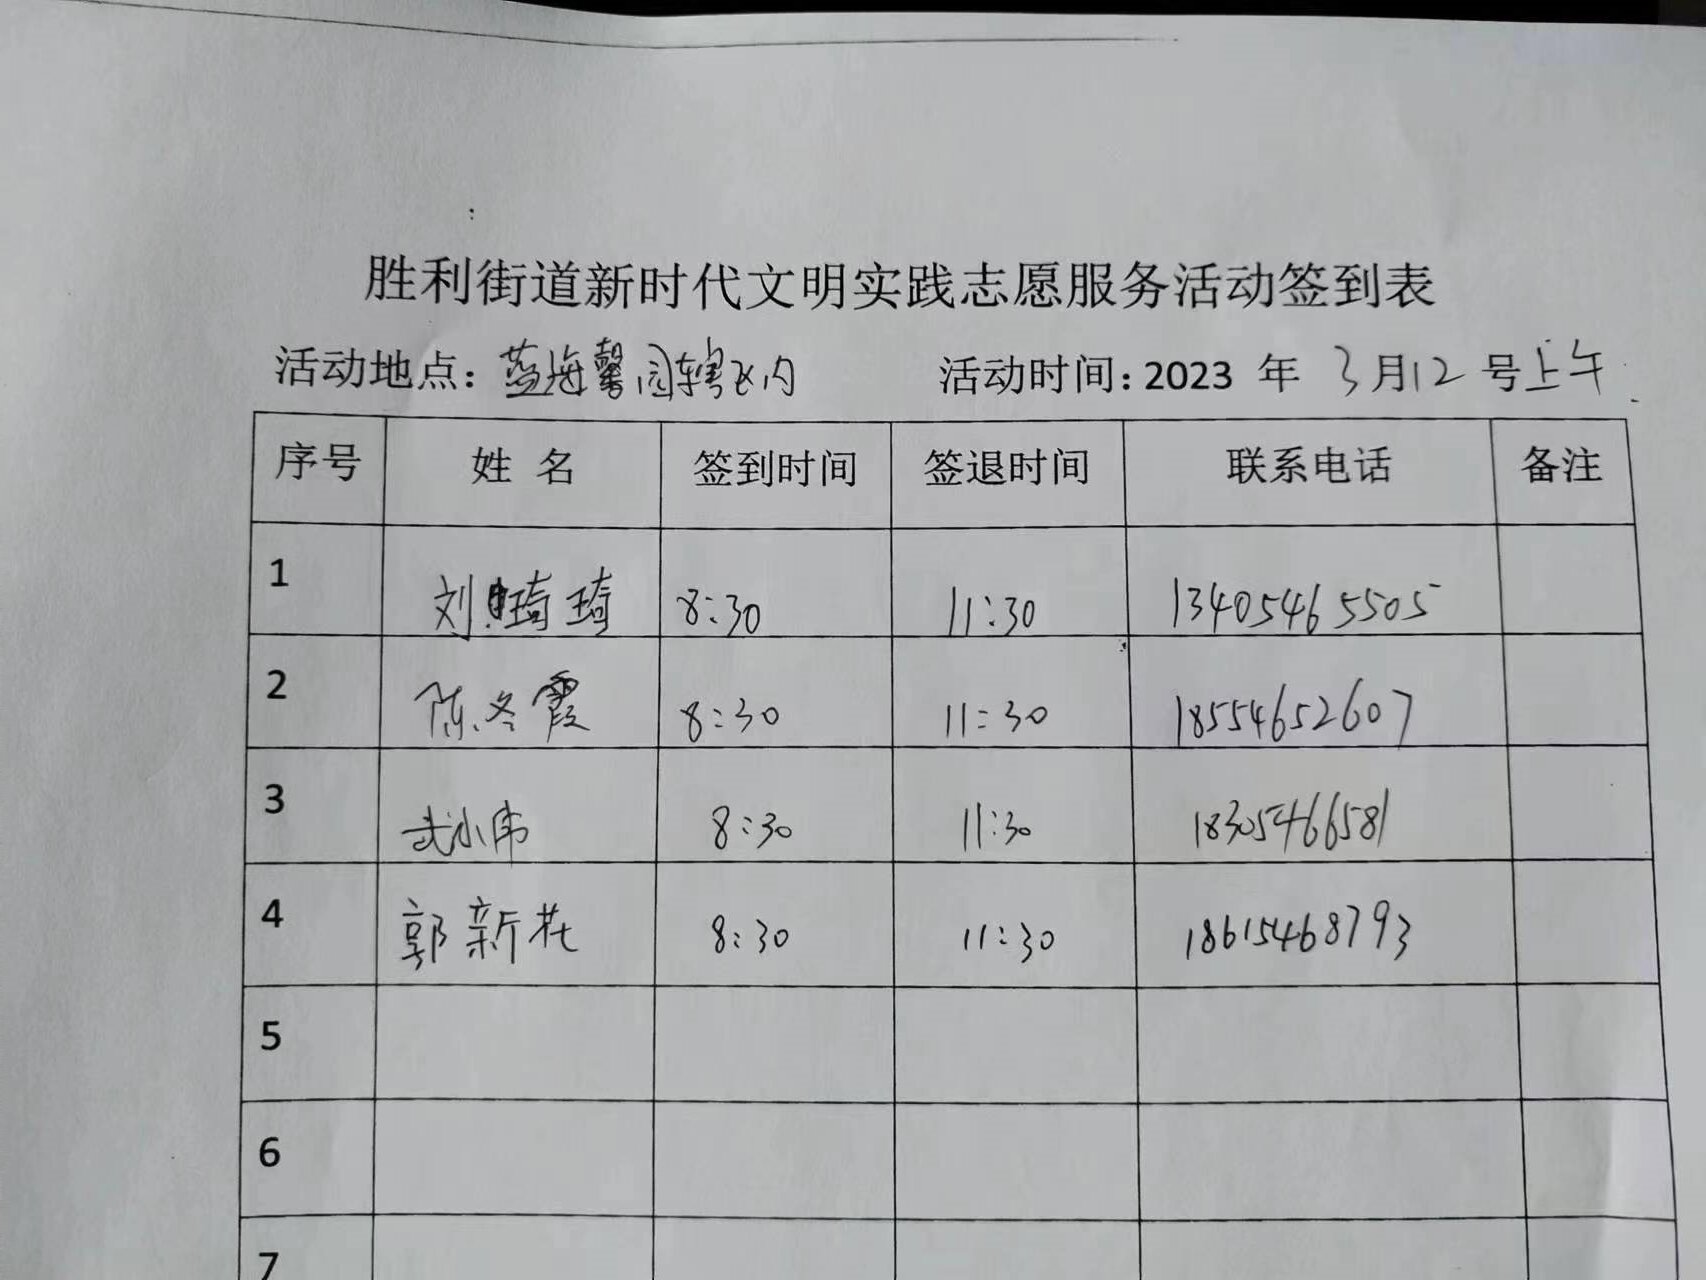 胜利街道新时代文明实践志愿服务活动签到表
活动地点：蓝海馨园辖区内 活动时间：2023 年 3月12 号上午
序号 姓 名 签到时间 签退时间 联系电话 备注
1 刘琦琦 8:30 11:30 13405465505
2 陈冬霞 8:30 11:30 18554652607
3 武小伟 8:30 11:30 18305466581
4 郭新花 8:30 11:30 18615468793
5
6
7